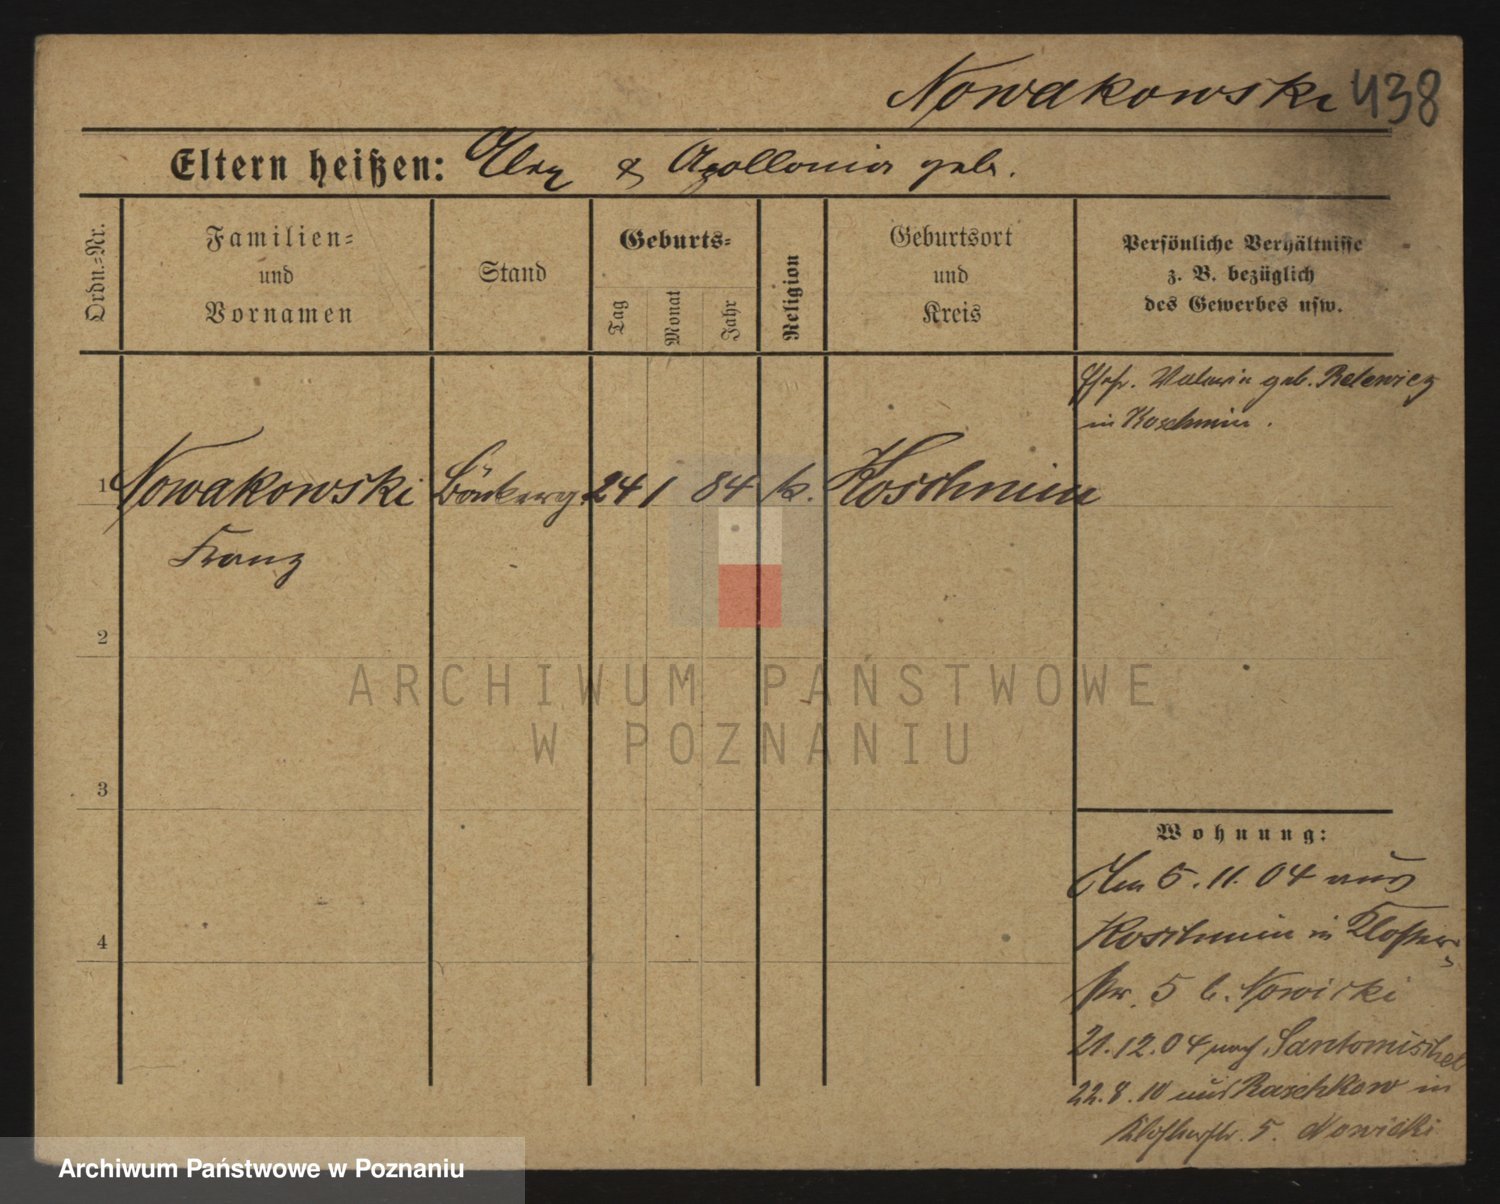 Nowakowski 438
Eltern heißen: Alex & Apollonia geb.
Ordn.-Nr.
Familien- und Vornamen
Stand
Geburts-
Tag
Monat
Jahr
Religion
Geburtsort und Kreis
Persönliche Verhältnisse
z. B. bezüglich
des Gewerbes usw.
Ehefr. Valeria geb.
in Koschmin.
1 Nowakowski 24 1 84 k. Koschmin
Franz
2
3
4
Wohnung:
Am 5.11.04 aus
Koschmin in Kloster-
str. 5 b. Nowicki
21.12.04 nach Santomischel
22.8.10 aus Raschkow in
Klosterstr. 5. Nowicki
ARCHIWUM PAŃSTWOWE
W POZNANIU
Archiwum Państwowe w Poznaniu